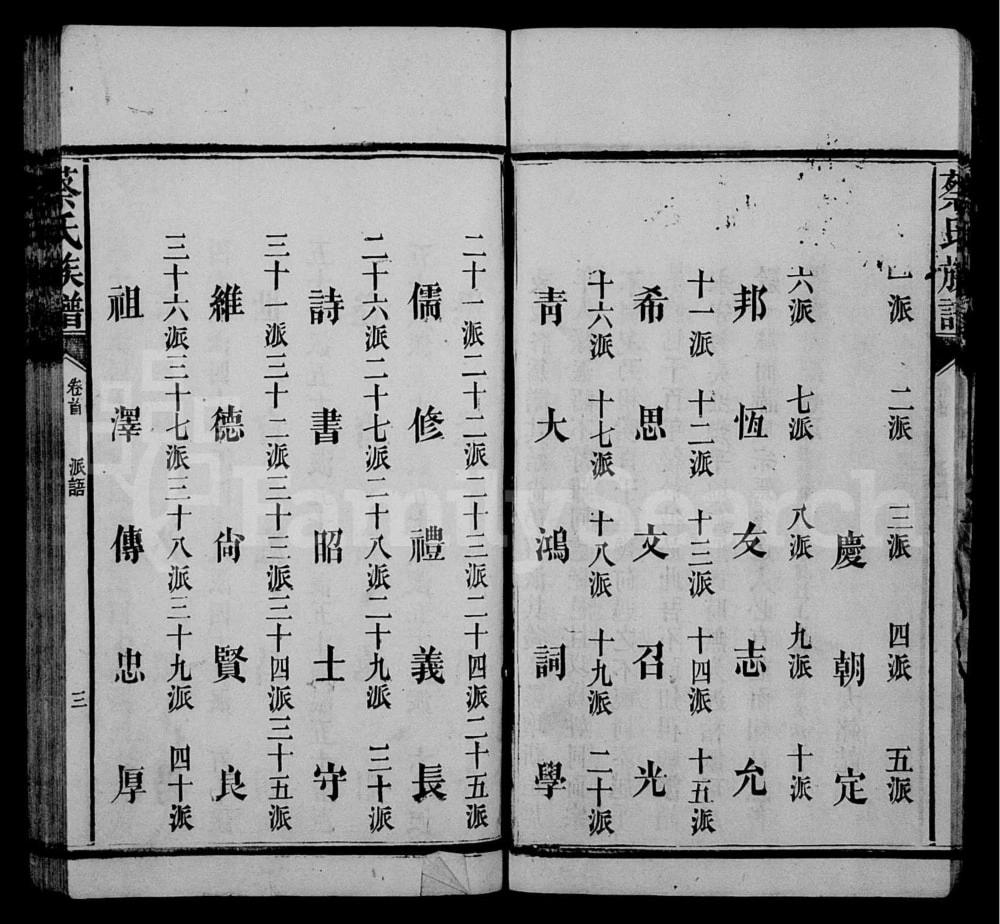 蔡氏族譜
一派 二派 三派 四派 五派
慶 朝 定
六派 七派 八派 九派 十派
邦 恆 友 志 允
十一派 十二派 十三派 十四派 十五派
希 思 文 召 光
十六派 十七派 十八派 十九派 二十派
青 大 鴻 詞 學
二十一派 二十二派 二十三派 二十四派 二十五派
儒 修 禮 義 長
二十六派 二十七派 二十八派 二十九派 三十派
詩 書 昭 士 守
三十一派 三十二派 三十三派 三十四派 三十五派
維 德 尙 賢 良
三十六派 三十七派 三十八派 三十九派 四十派
祖 澤 傳 忠 厚
蔡氏族譜 卷首 派語 三
FamilySearch